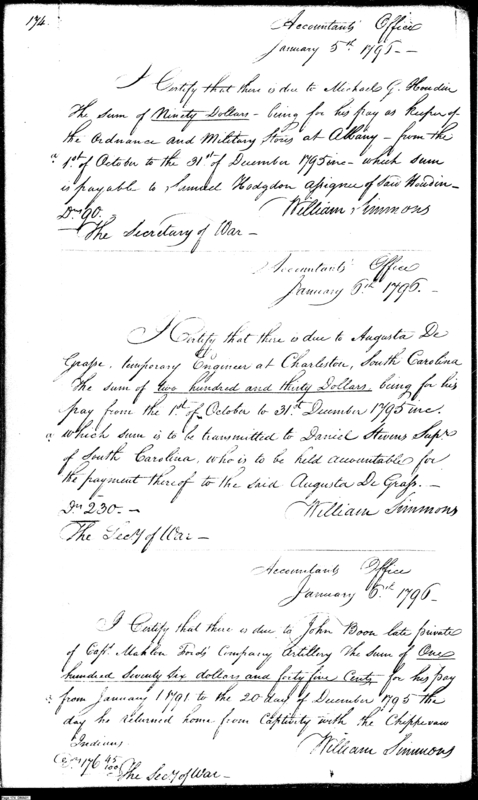 174.
Accountants Office
January 5th 1796 - -
I Certify that there is due to Michael G. Houdin
The sum of Ninety Dollars - being for his pay as keeper of
the Ordnance and Military Stores at Albany - from the
1st of October to the 31st of December 1795 inc - which sum
is payable to Samuel Hodgdon assignee of said Houdin -
William Simmons
Drs 90.
The Secretary of War -
Accountants Office
January 6th 1796. -
I Certify that there is due to Augusta De
Grasse, temporary Engineer at Charleston, South Carolina
The sum of two hundred and thirty Dollars being for his
pay from the 1st of October to 31st December 1795 inc.
which sum is to be transmitted to Daniel Stevens Supr
of South Carolina, who is to be held accountable for
the payment thereof to the said Augusta De Grass. -
Drs 230. -
William Simmons
The Secy of War -
Accountants Office
January 6th 1796.
I Certify that there is due to John Boon late private
of Capt. Mahlon Fords Company Artillery the sum of One
hundred Seventy Six dollars and forty five Cents for his pay
from January 1 1791 to the 20 day of December 1795 the
day he returned home from Captivity with the Chippewaw
Indians
William Simmons
Drs 176 45/100
The Secy of War -